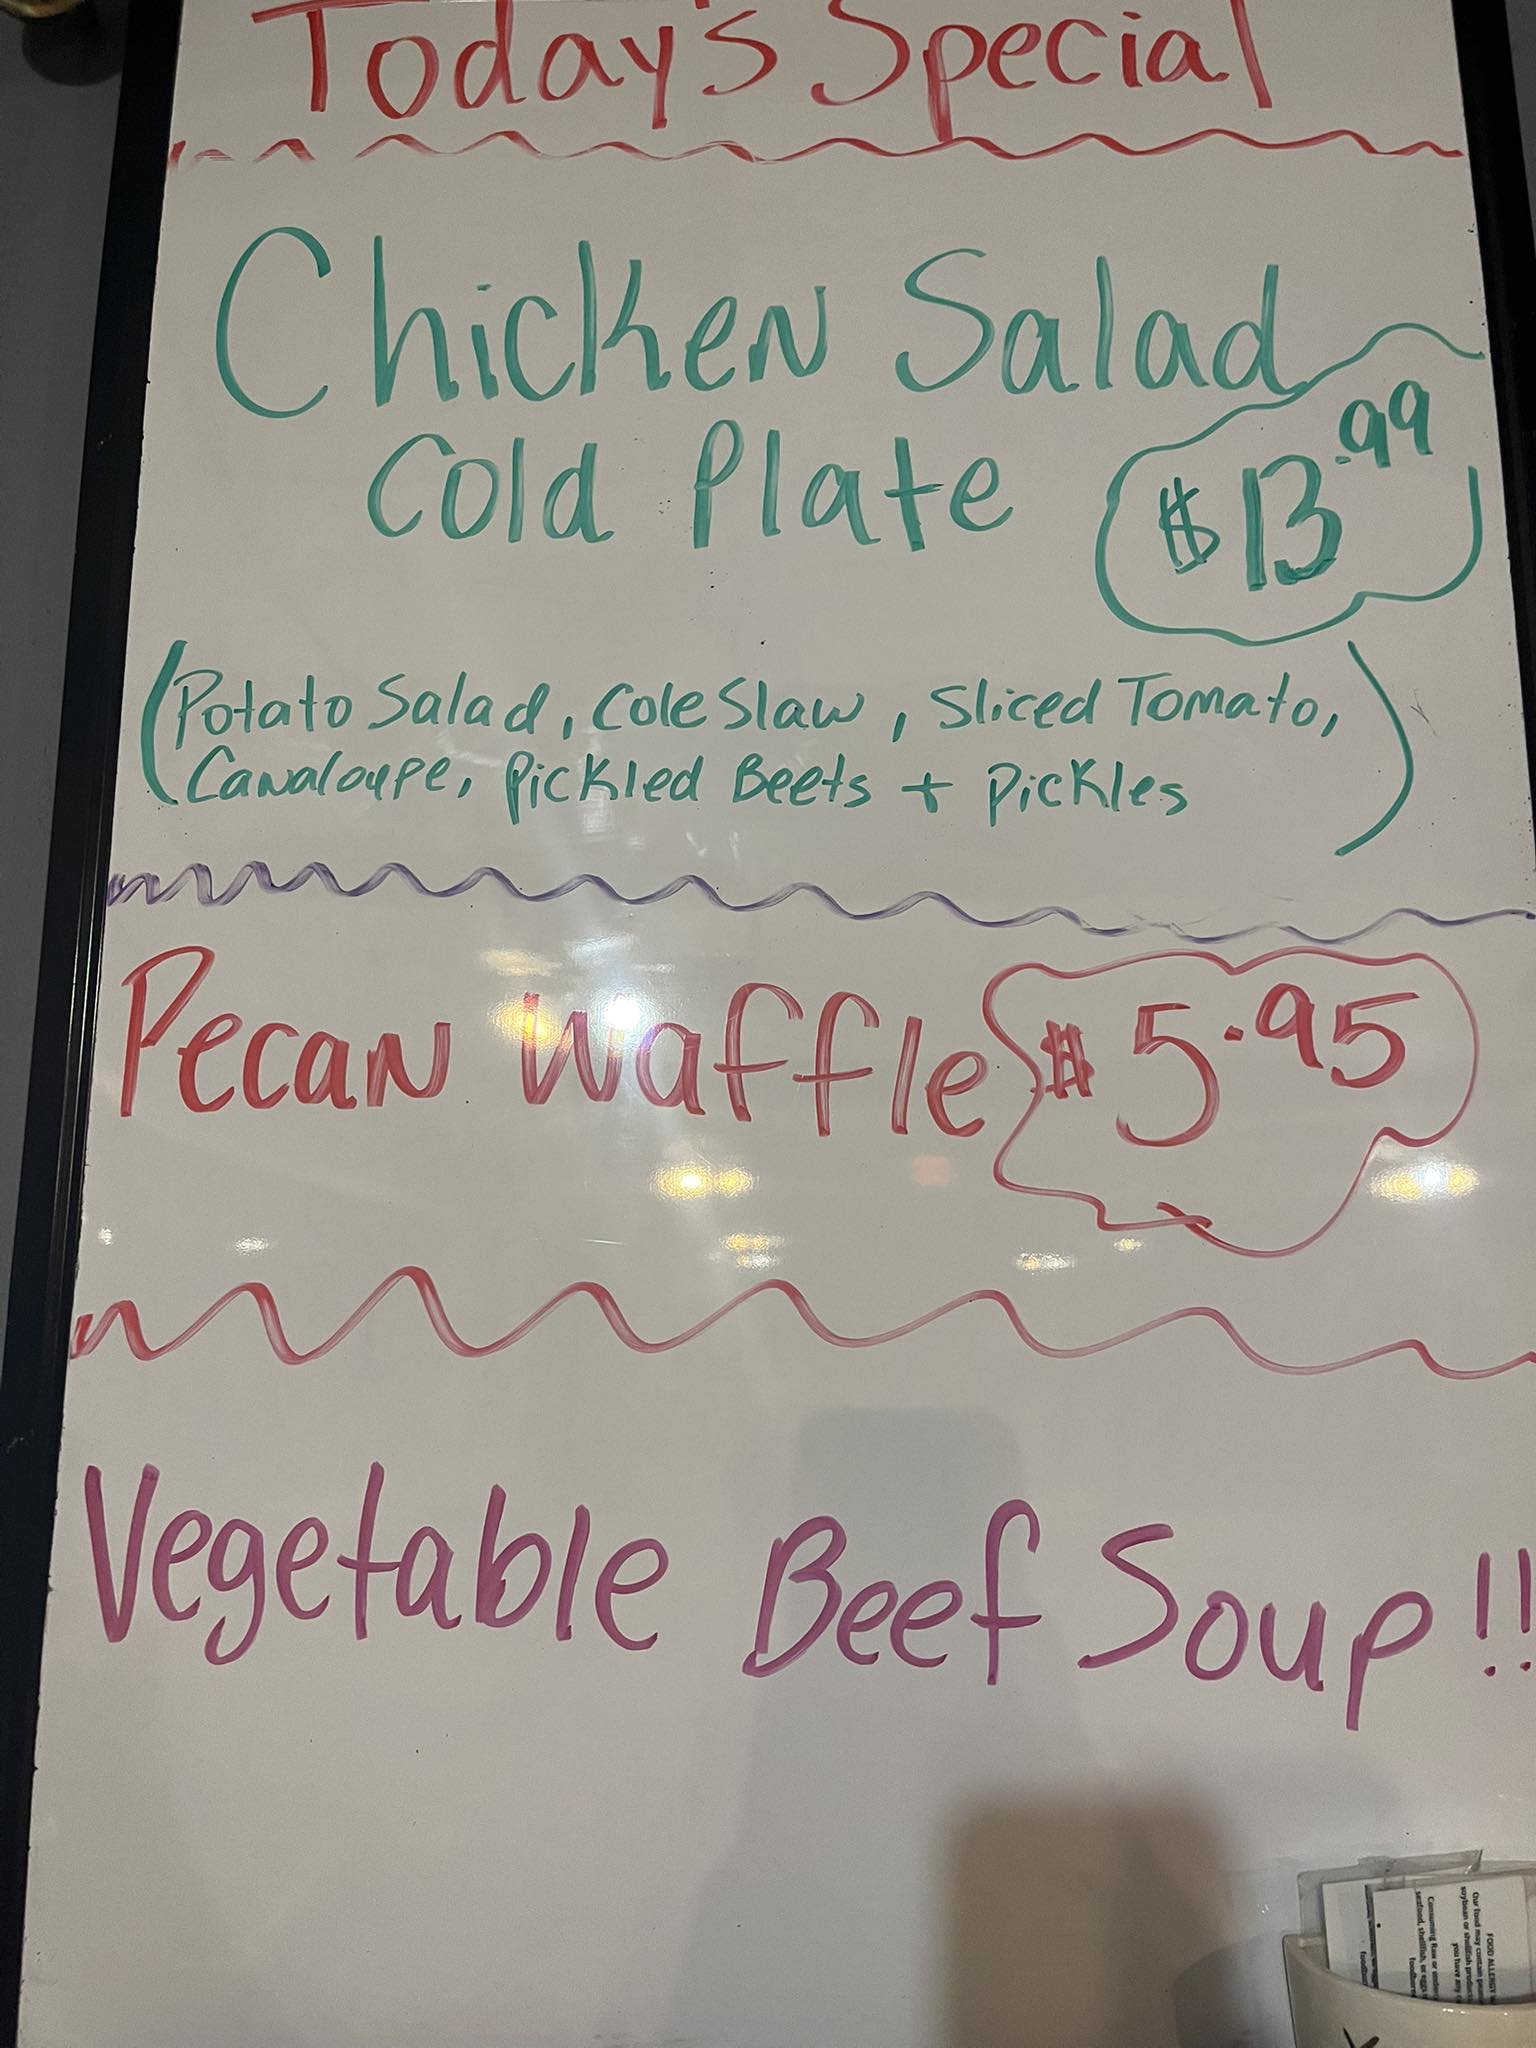 Today's Special
Chicken Salad
Cold Plate $13.99
(Potato Salad, Cole Slaw, Sliced Tomato,
Canaloupe, Pickled Beets + Pickles)
Pecan Waffle $5.95
Vegetable Beef Soup!!
FOOD ALLERGY
Our food may contain
soybean or shellfish
you have any
Consuming Raw or
seafood, shellfish, or eggs